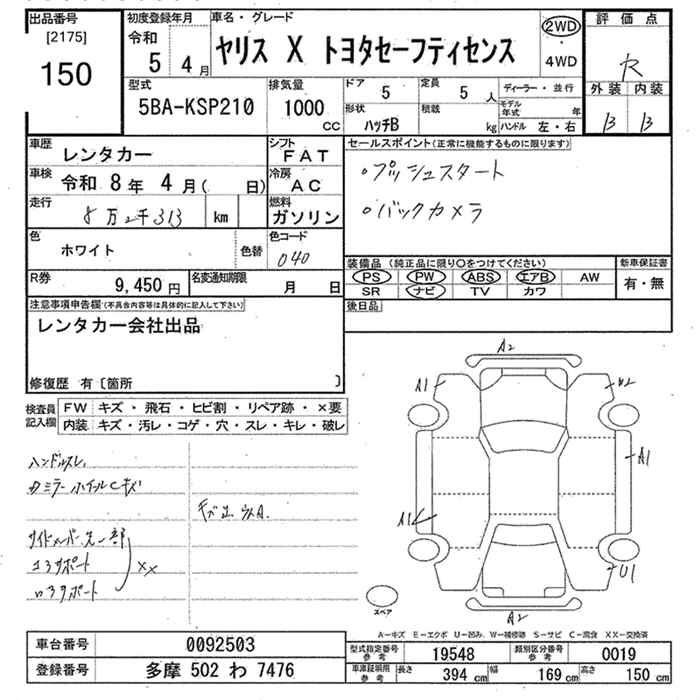 出品番号
[2175]
150
初度登録年月
令和
5 4 月
車名・グレード
ヤリス X トヨタセーフティセンス
2WD
・
4WD
評価点
R
外装 内装
B B
型式
5BA-KSP210
排気量
1000
CC
ドア 5
定員 5 人
形状 ハッチB
積載 kg
ディーラー・並行
モデル年式 年
ハンドル 左・右
車歴 レンタカー
シフト FAT
車検 令和 8 年 4 月( 日)
冷房 AC
走行 8万2千313 km
燃料 ガソリン
色 ホワイト 色替
色コード 040
R券 9,450 円
名変通知期限 月 日
セールスポイント(正常に機能するものに限ります)
○プッシュスタート
○バックカメラ
装備品(純正品に限り○をつけてください)
PS PW ABS エアB AW
SR ナビ TV カワ
新車保証書
有・無
後日品
注意事項申告欄(不具合内容等は具体的に記入して下さい)
レンタカー会社出品
修復歴 有〔箇所 〕
検査員
記入欄
FW キズ・飛石・ヒビ割・リペア跡・×要
内装 キズ・汚レ・コゲ・穴・スレ・キレ・破レ
ハンドルスレ
カミラーホイールCキズ
サイドメンバー先一部
コアサポート
ロアサポート
XX
A2
A1
W2
A1
A1
U1
A2
スペア
A-キズ E-エクボ U-凹み W-補修跡 S-サビ C-腐食 XX-交換済
車台番号 0092503
登録番号 多摩 502 わ 7476
型式指定番号
参考
19548
類別区分番号
参考
0019
車庫証明用
参考
長さ 394 cm
幅 169 cm
高さ 150 cm